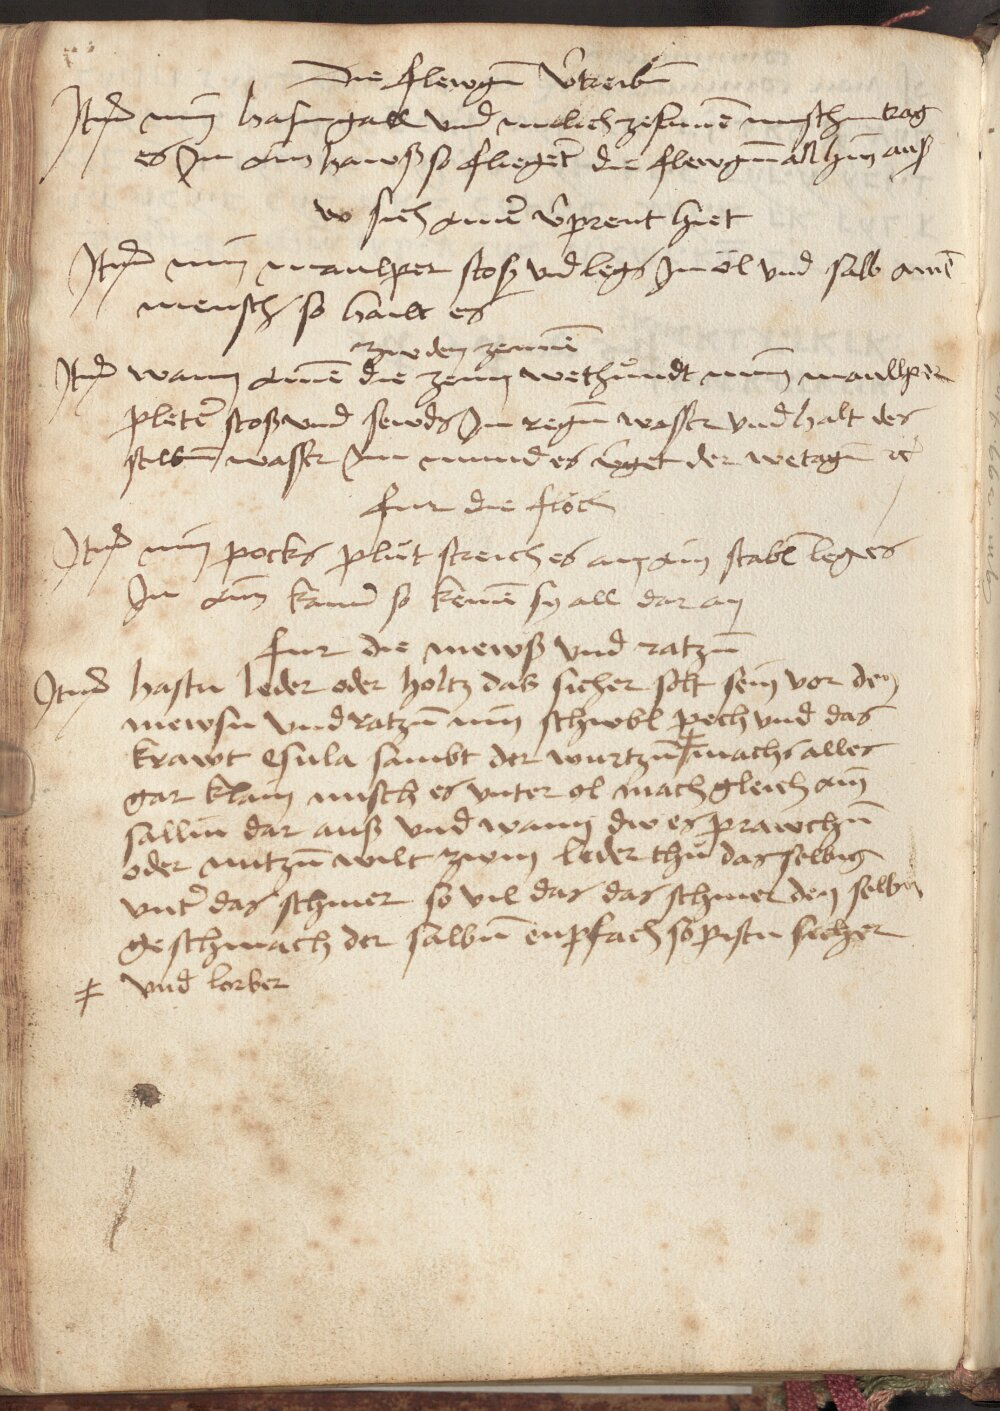 Die flewgn̄ v̄treibn̄
Itm̄ nim hasngall vnd milich zesamē misch trag
es In ain hawß so fliegēt die flewgn̄ all hin auß
wo sich ainer v̄prent hiet
Itm̄ nim maulper stoß vnd legs In öl vnd salb ainē
mensch so hailt es
zw den zennē
Itm̄ wann ainē die zenn wethůndt nim maullper
pleter̄ stoß vnd sewds In regn̄ wasser vnd halt des
selbn̄ wasser Im mund es v̄get der wetagn̄ ꝛc
fur die flöch
Itm̄ nim pocks plůt streich es an ain stabl̄ leg es
In ain̄ kamer so kemē sy all dar an
fur die mewß vnd ratzn̄
Itm̄ hastu leder oder holtz das sicher solt sein vor den
mewsn vnd ratzn̄ nim schwebl pech vnd das
krawt Esula sambt der wurtzn̄ ǂ machs alles
gar klain misch es vnter ol mach gleich ain
salbm dar auß vnd wann dw es prawchn̄
oder nutzn̄ wilt zwm leder thů das selbig
vnter̄ das schmer so vil das das schmer den selbn
geschmach der salbn̄ enpfach so pistu sicher
ǂ vnd lorber